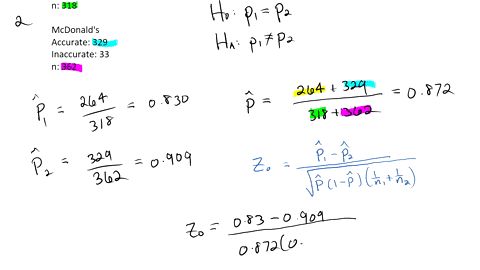 2
n: 318
McDonald's
Accurate: 329
Inaccurate: 33
n: 362
H₀: p₁ = p₂
Hₐ: p₁ ≠ p₂
p̂₁ = 264/318 = 0.830
p̂ = (264 + 329)/(318 + 362) = 0.872
p̂₂ = 329/362 = 0.909
z₀ = (p̂₁ - p̂₂)/√(p̂(1-p̂)(1/n₁ + 1/n₂))
z₀ = (0.83 - 0.909)/(0.872(0.